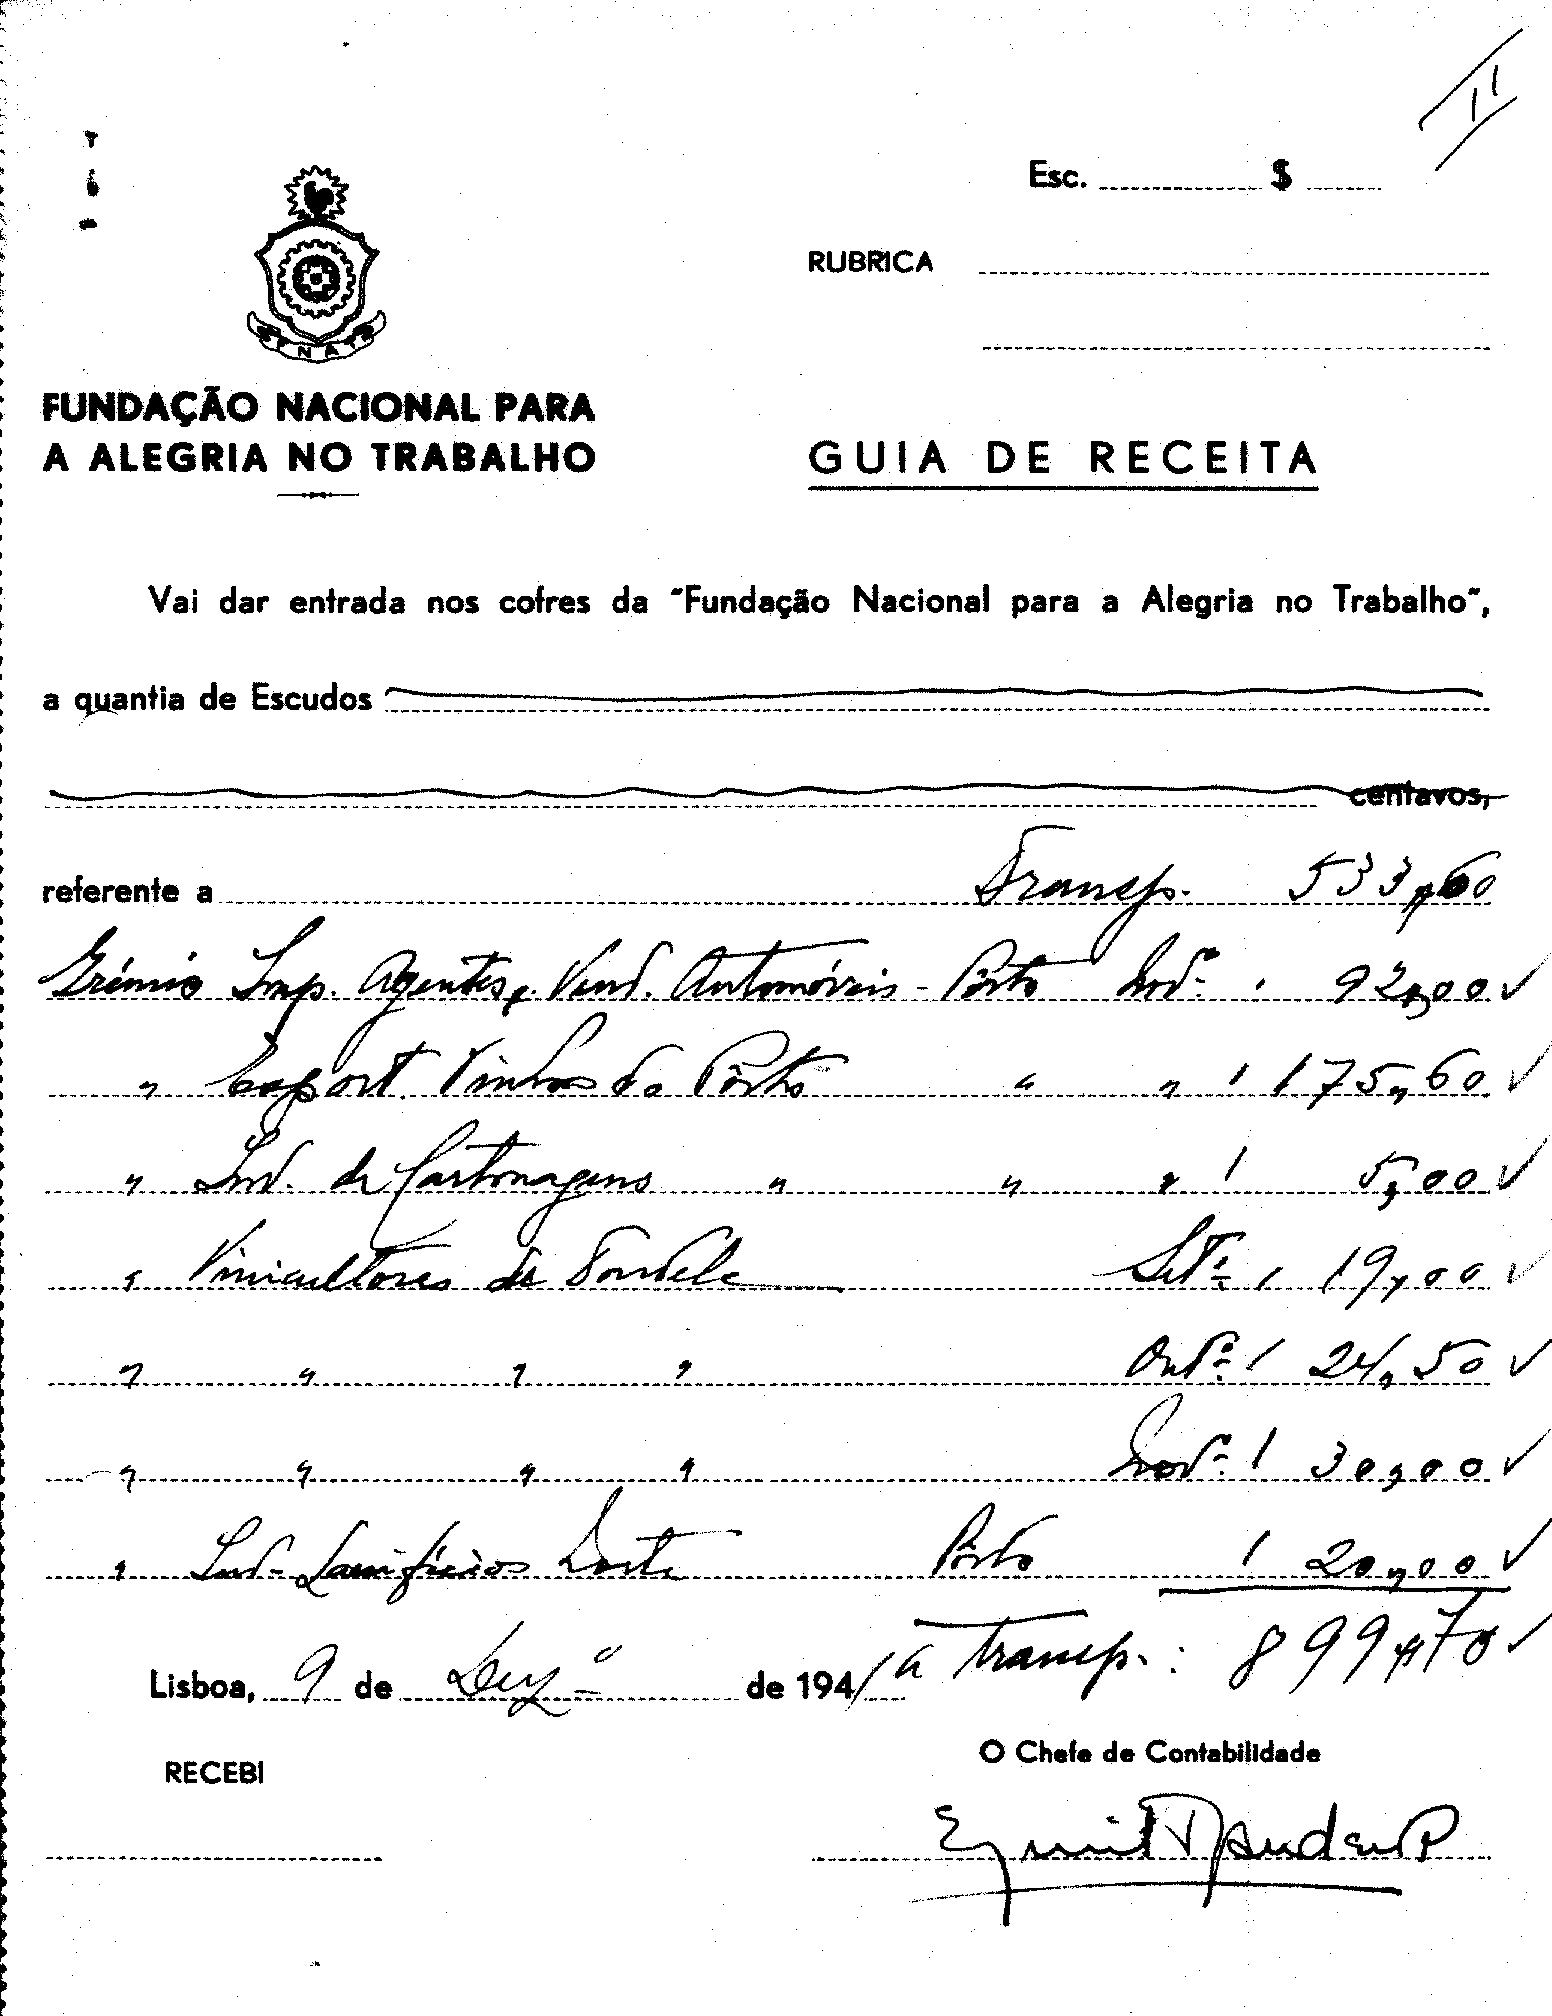 II
Esc. $
RUBRICA
FNAT
FUNDAÇÃO NACIONAL PARA
A ALEGRIA NO TRABALHO
GUIA DE RECEITA
Vai dar entrada nos cofres da "Fundação Nacional para a Alegria no Trabalho",
a quantia de Escudos
centavos,
referente a Transp. 533,60
Grémio Imp. Agentes, Vend. Automóveis - Pôrto Novº. 92,00
" Export. Vinhos do Pôrto " " 175,60
" Ind. de Cartonagens " " " 5,00
" Vinicultores de Tondela Setº. 19,00
" " " " Outº. 24,50
" " " " Novº. 30,00
" Ind. Lanifícios Norte Pôrto 20,00
Lisboa, 9 de Dezº de 1941 a transp.: 899,70
RECEBI
O Chefe de Contabilidade